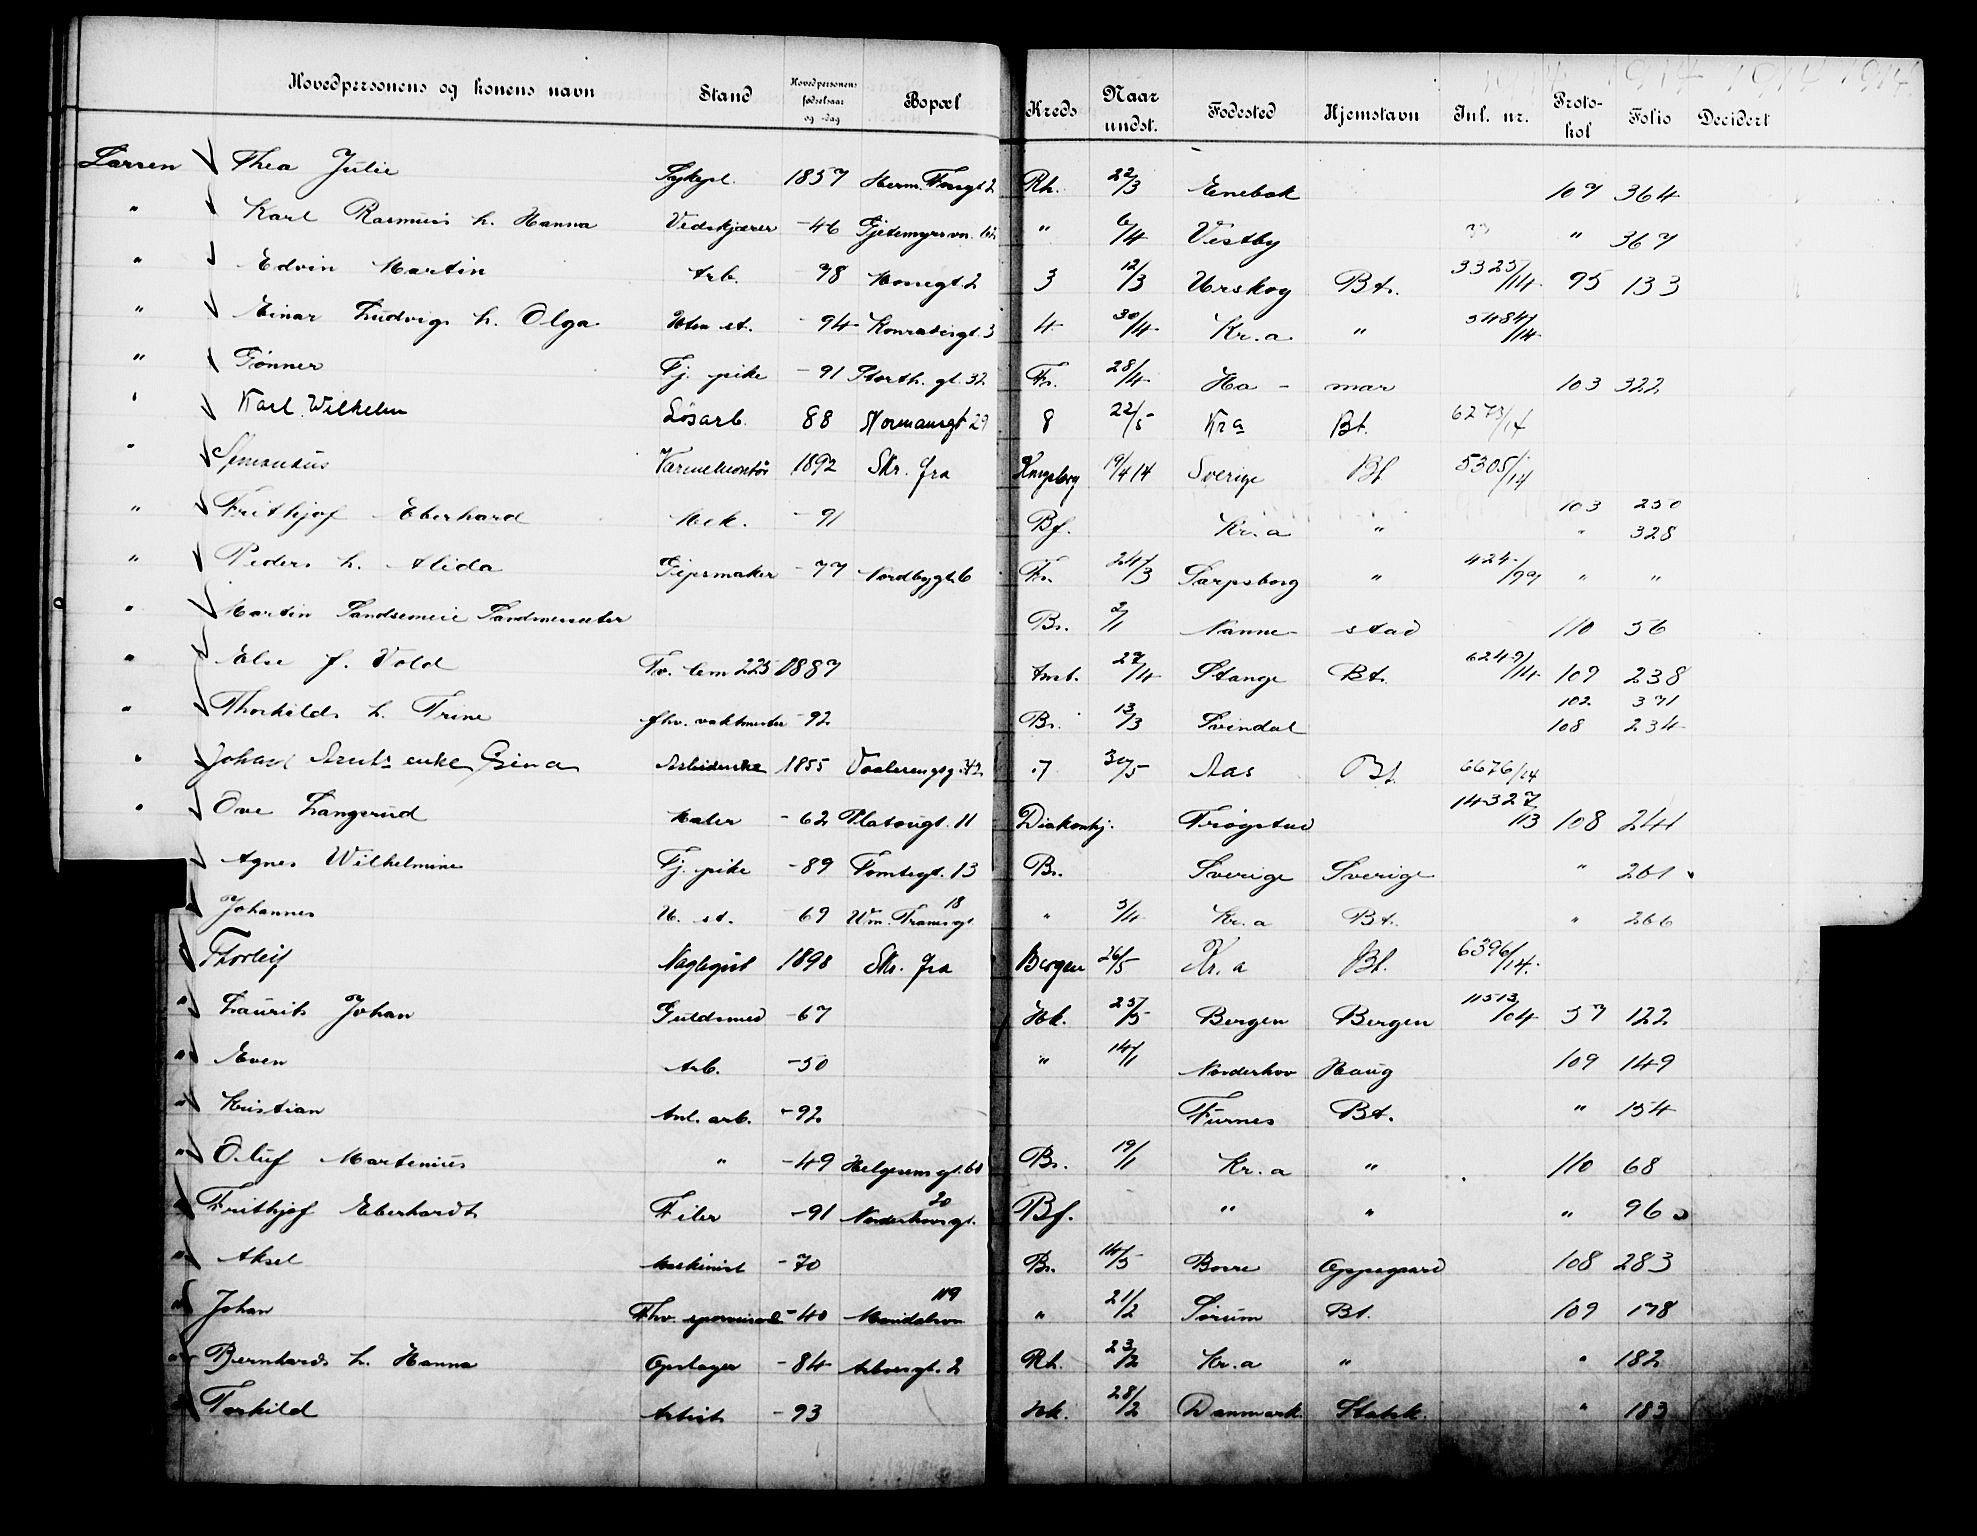 1914 1914 1914
Hovedpersonens og konens navn Stand Hovedpersonens fødselsaar og -dag Bopæl Kreds Naar undst. Fødested Hjemstavn Jnl. nr. Protokol Folio Decidert
Larsen Thea Julie Sykepl. 1857 Herm. Fossgt 2 Rh. 22/3 Enebak 109 364
" Karl Rasmus h. Hanna Vedskjærer -46 Gjetemyrsvn. " 6/4 Vestby " 367
" Edvin Martin Arb. -98 Monegt. 2 3 12/3 Urskog Bt. 3325/14 95 133
" Einar Ludvigs h. Olga Uten st. -94 Konradsgt. 3 4 30/4 Kr.a " 5484/14
" Tønner Tj. pike -91 Storth. gt. 32 Fr. 28/4 Ha - mar 103 322
" Karl Wilhelm Løsarb. 88 Normansgt 29 8 22/5 Kra Bt. 6273/14
" 1892 Skr. fra Kongsberg 19/4 14 Sverige Bf 5305/14
" Frithjof Eberhard Mek. -91 Bf. Kr.a " 103 250
" 328
" Peders h. Alida Gipsmaker -77 Nordbygt. 6 Fr. 24/3 Sarpsborg " 424/99 " "
" Martin Br. 2/1 Nanne- stad 110 56
" Else f. Vold Tv. lem 225 1887 Amt. 27/4 Stange Bt. 6249/14 109 238
" Thorkilds h. Trine fhv. vaktmester -92 Br. 13/3 Svindal 102 371
108 234
" Johan enke Gina Arbeiderske 1855 Vaalerengsg. 42 7 30/5 Aas Bt. 6676/14
" Ove Langerud Maler -62 Platougt. 11 Diakonhj. Trøgstad 14327/13 108 241
Agnes Wilhelmine Tj. pike -89 Tomtegt. 13 Br. Sverige Sverige " 261
Johannes U. st. -69 Wm. Tranes gt 18 " 3/4 Kr.a Bt. " 266
Thorleif 1898 Skr. fra Bergen 26/5 Kr.a Bt. 6396/14
" Laurits Johan Guldsmed -67 Hk. 25/5 Bergen Bergen 11513/04 57 122
" Even Arb. -50 " 14/1 Norderhov Haug 109 149
" Kristian Anl. arb. -92 Furnes Bt. " 154
" Oluf Martinius " -49 Helgesens gt. 60 Br. 19/1 Kr.a " 110 68
" Frithjof Eberhardt Filer -91 Norderhovsgt. 20 Bf. " " " 96
" Aksel Maskinist -70 Br. 14/5 Borre Oppegaard 108 283
" Johan Fhv. -40 119 " 21/2 Sørum Bt. 109 178
" Bernhards h. Hanna Opslager -84 2 Rh. 23/2 Kr.a " " 182
" Torkild Artist -93 Hk. 28/2 Danmark Statsk. " 183